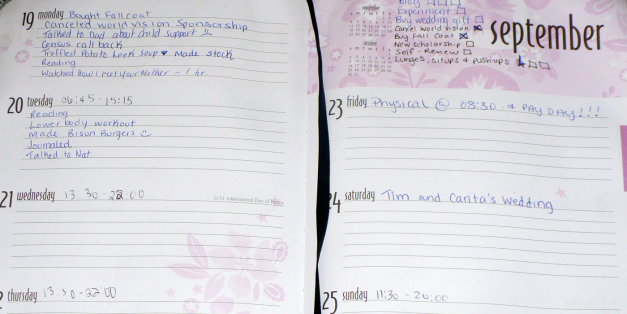 19 monday Bought Fall coat
Canceled world vision Sponsorship
Talked to Dad about child support
Census call back
Truffled Potato Leek Soup ♥ Made stock
Reading
Watched How i met your Mother - 1 hr
20 tuesday 06:45 - 15:15
Reading
Lower body workout
Made Bison Burgers
Journaled
Talked to Nat
21 wednesday 13 30 - 22:00
U.N. International Day of Peace
thursday 13 30 - 22:00
Blog
Experiment
Buy wedding gift
Cancel world vision
Buy Fall Coat
New scholarship
Self-Renew
Lunges, situps & pushups
september
23 friday Physical @ 08:30 & PAY DAY!!!
24 saturday Tim and Carita's Wedding
25 sunday 11:30 - 20:00